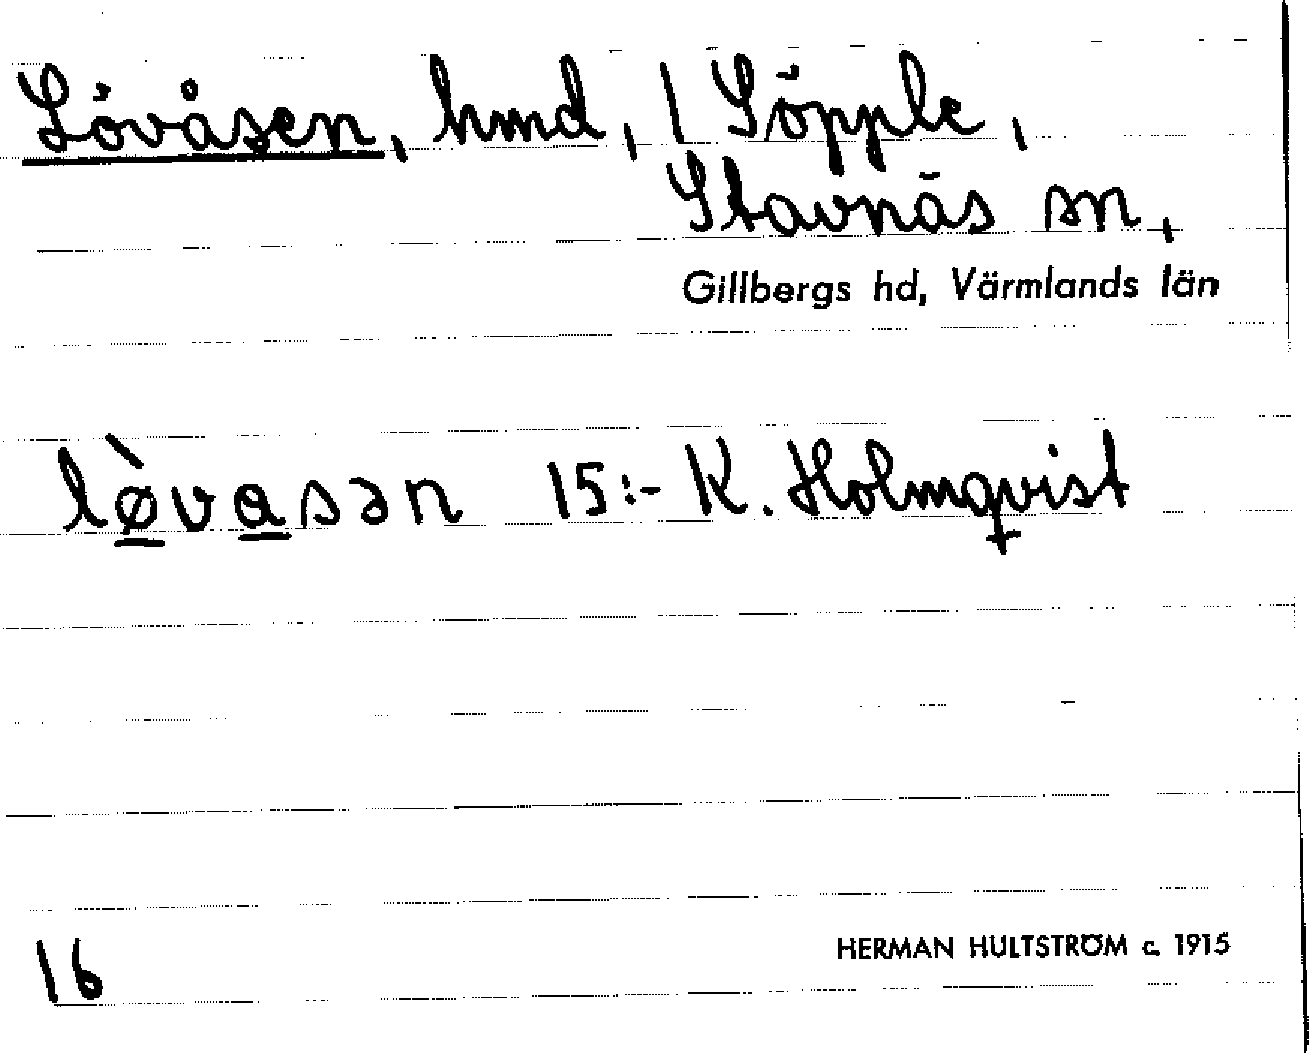 Lövåsen, hmd, / Söpple,
Stavnäs sn,
Gillbergs hd, Värmlands län
lø̀vasən 15:- K. Holmqvist
16
HERMAN HULTSTRÖM c. 1915